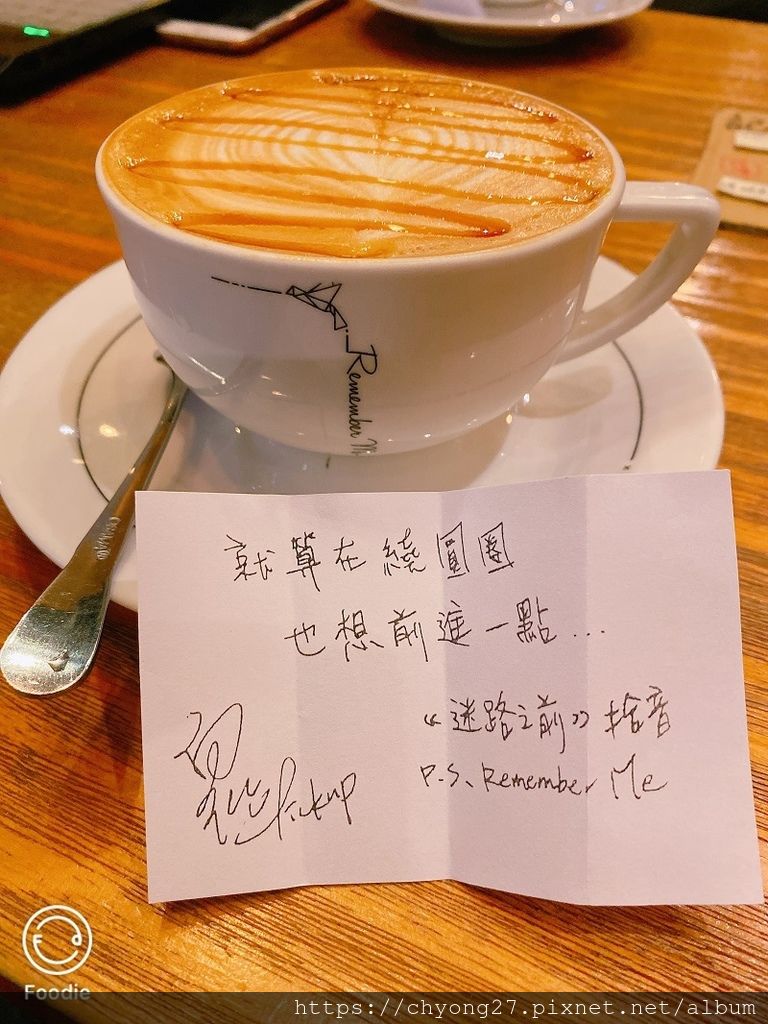 Remember M
就算在繞圓圈
也想前進一點...
《迷路之前》拾音
P.S. Remember Me
Pickup
Foodie
https://chyong27.pixnet.net/album